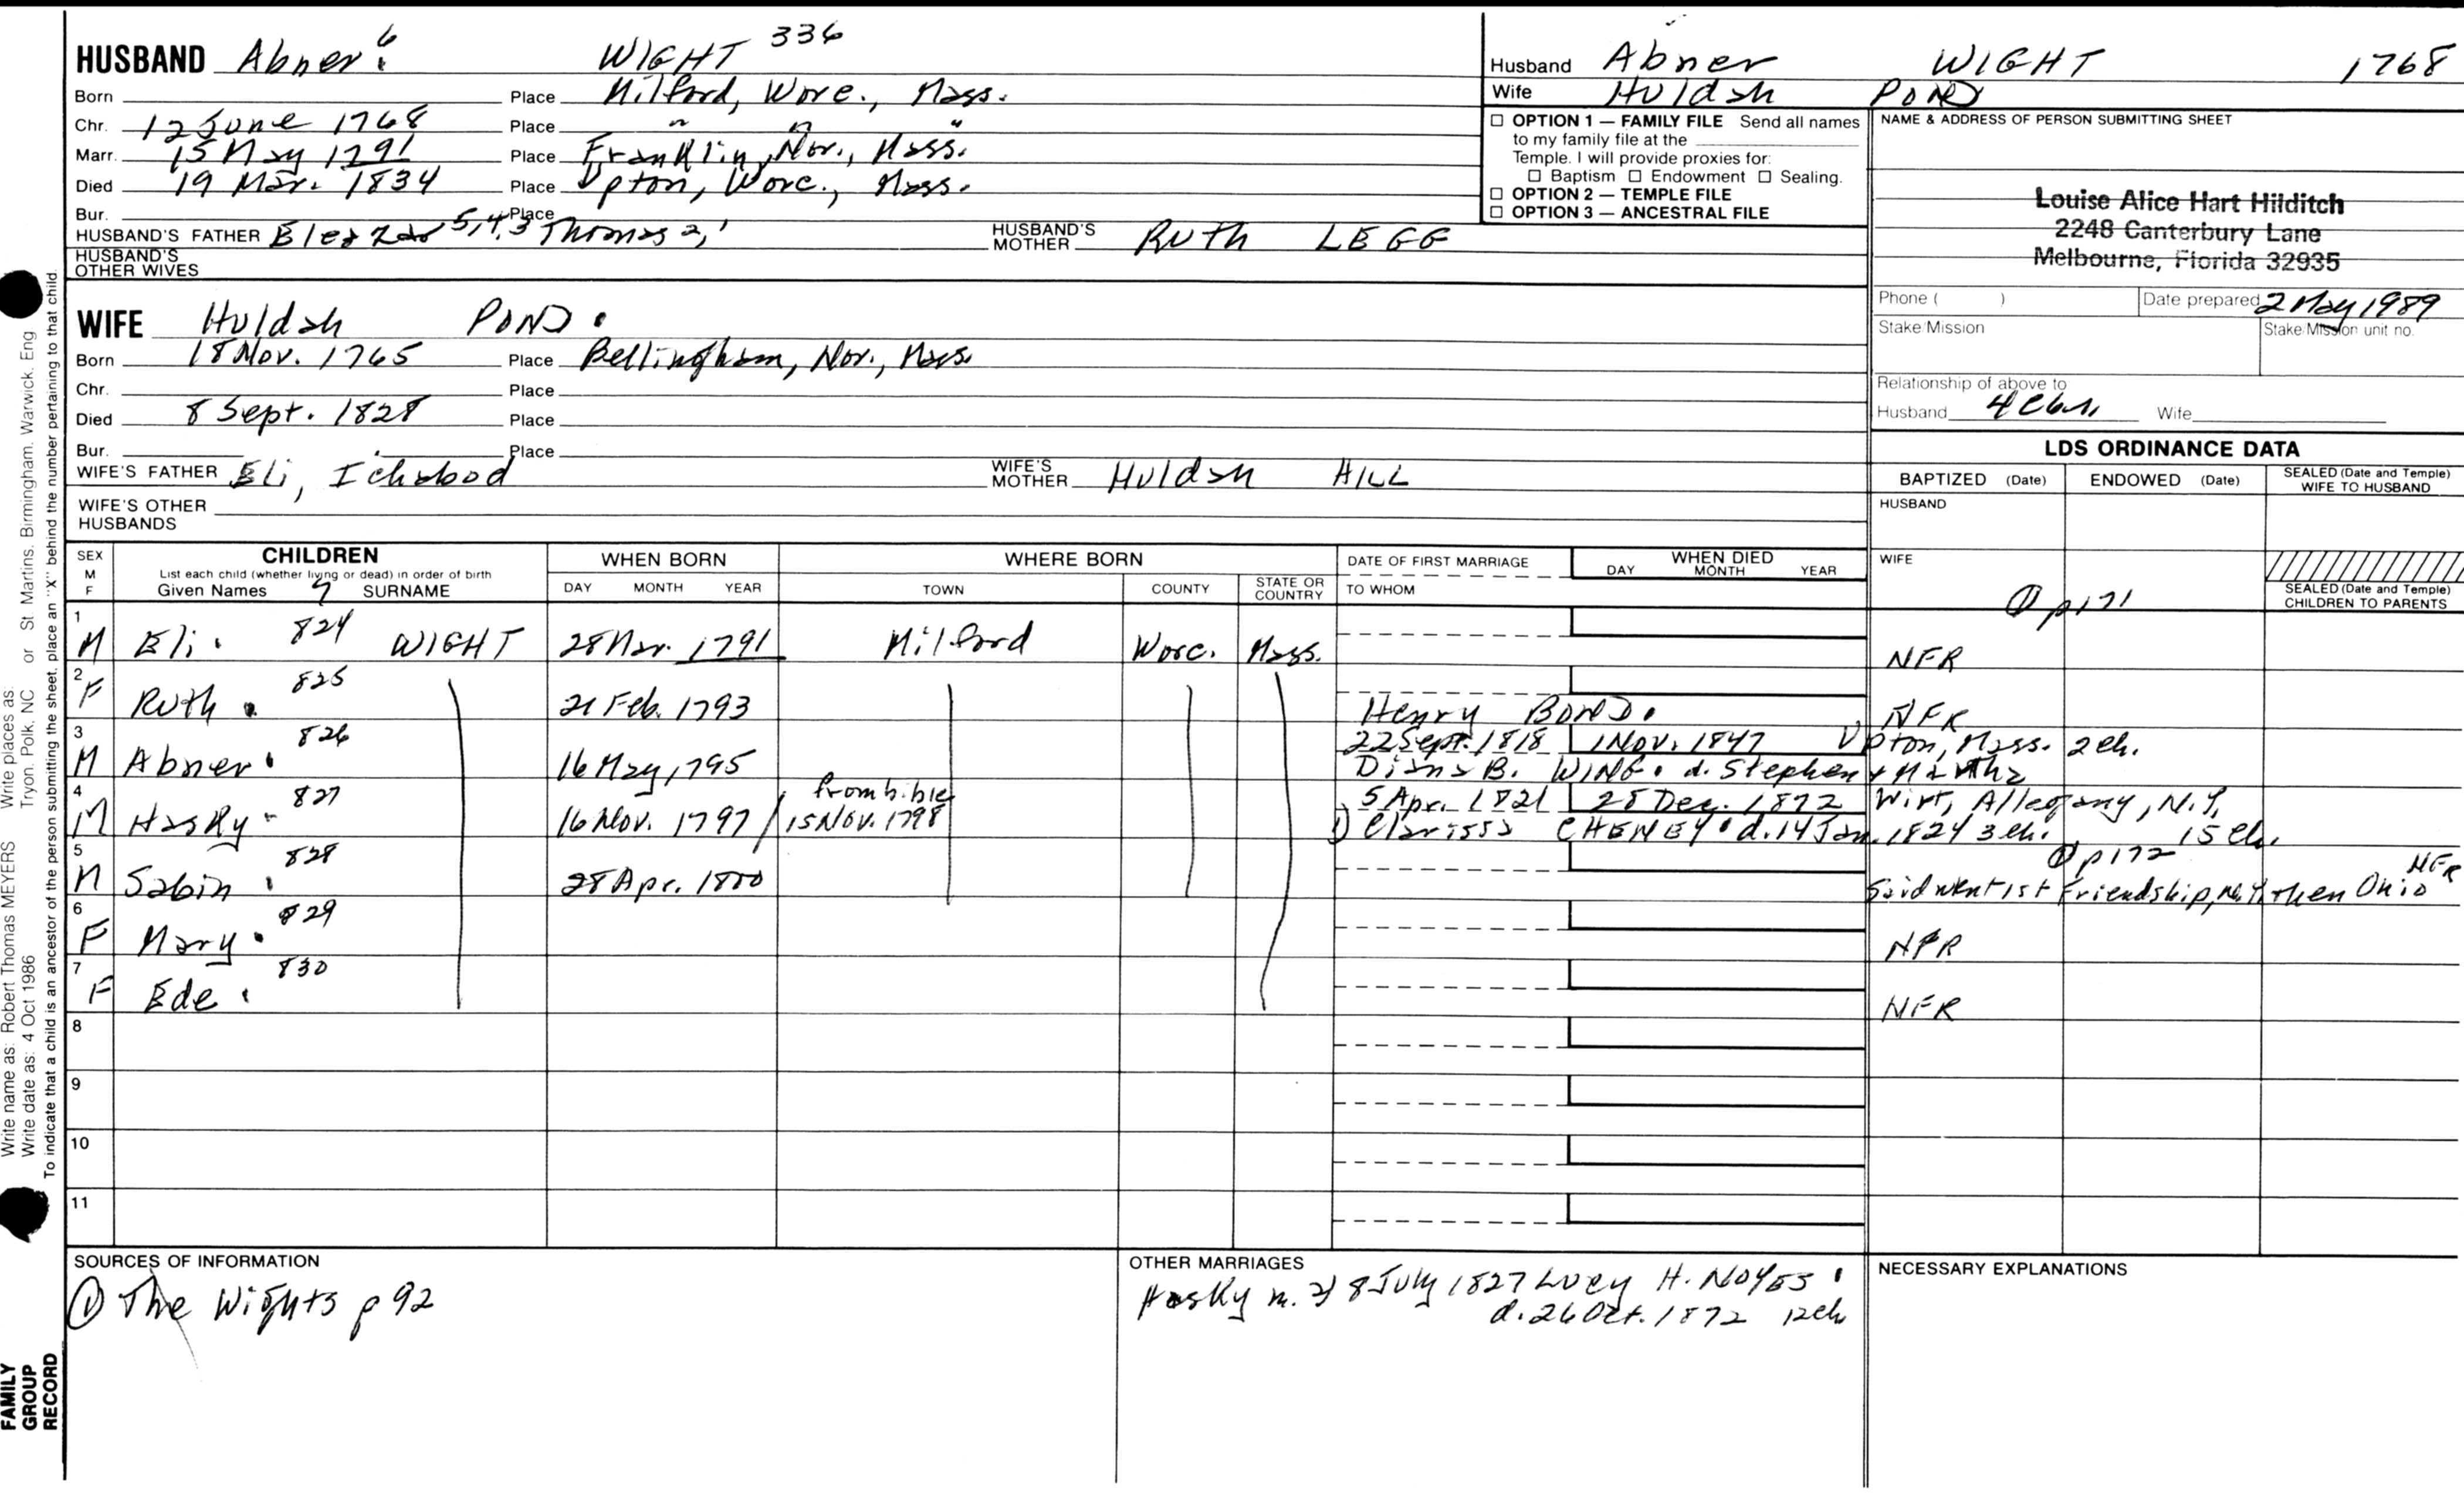 HUSBAND Abner 6 WIGHT 336
Born Place Milford, Worc., Mass.
Chr. 12 June 1768 Place " " "
Marr. 15 May 1791 Place Franklin, Nor., Mass.
Died 19 Mar. 1834 Place Upton, Worc., Mass.
Bur. Place
HUSBAND'S FATHER Eleazar 5,4,3 Thomas 2,1 HUSBAND'S MOTHER Ruth LEGG
HUSBAND'S OTHER WIVES
Husband Abner WIGHT 1768
Wife Huldah POND
☐ OPTION 1 — FAMILY FILE Send all names
to my family file at the
Temple. I will provide proxies for:
☐ Baptism ☐ Endowment ☐ Sealing.
☐ OPTION 2 — TEMPLE FILE
☐ OPTION 3 — ANCESTRAL FILE
NAME & ADDRESS OF PERSON SUBMITTING SHEET
Louise Alice Hart Hilditch
2248 Canterbury Lane
Melbourne, Florida 32935
Phone ( ) Date prepared 2 May 1989
Stake Mission Stake/Mission unit no.
Relationship of above to
Husband Wife
WIFE Huldah POND
Born 18 Nov. 1765 Place Bellingham, Nor., Mass.
Chr. Place
Died 8 Sept. 1828 Place
Bur. Place
WIFE'S FATHER Eli, Ichabod WIFE'S MOTHER Huldah HILL
WIFE'S OTHER HUSBANDS
LDS ORDINANCE DATA
BAPTIZED (Date) ENDOWED (Date) SEALED (Date and Temple) WIFE TO HUSBAND
HUSBAND
WIFE
① p 171
SEALED (Date and Temple) CHILDREN TO PARENTS
SEX M F CHILDREN
List each child (whether living or dead) in order of birth
Given Names 7 SURNAME
WHEN BORN DAY MONTH YEAR
WHERE BORN TOWN COUNTY STATE OR COUNTRY
DATE OF FIRST MARRIAGE TO WHOM
WHEN DIED DAY MONTH YEAR
1 M Eli 824 WIGHT 28 Mar. 1791 Milford Worc. Mass. NFR
2 F Ruth 825 21 Feb. 1793 Henry BOND NFR
3 M Abner 826 16 May 1795 22 Sept. 1818 1 Nov. 1847 Upton, Mass. 2 ch.
Diana B. WING d. Stephen & Martha
4 M Hasky 827 16 Nov. 1797 / from bible 15 Nov. 1798 5 Apr. 1821 28 Dec. 1872 Wirt, Allegany, N.Y.
1) Clarissa CHENEY d. 14 Jan. 1824 3 ch. 15 ch.
① p 172
5 M Sabin 828 28 Apr. 1800 NFR
Said went 1st Friendship, N.Y. then Ohio
6 F Mary 829 NFR
7 F Ede 830 NFR
8
9
10
11
SOURCES OF INFORMATION
① The Wights p 92
OTHER MARRIAGES
Hasky m. 2) 8 July 1827 Lucy H. NOYES
d. 26 Oct. 1872 12 ch
NECESSARY EXPLANATIONS
Write name as: Robert Thomas MEYERS Write places as: Tryon, Polk, NC or St Martins, Birmingham, Warwick, Eng
Write date as: 4 Oct 1986
To indicate that a child is an ancestor of the person submitting the sheet, place an "X" behind the number pertaining to that child.
FAMILY
GROUP
RECORD